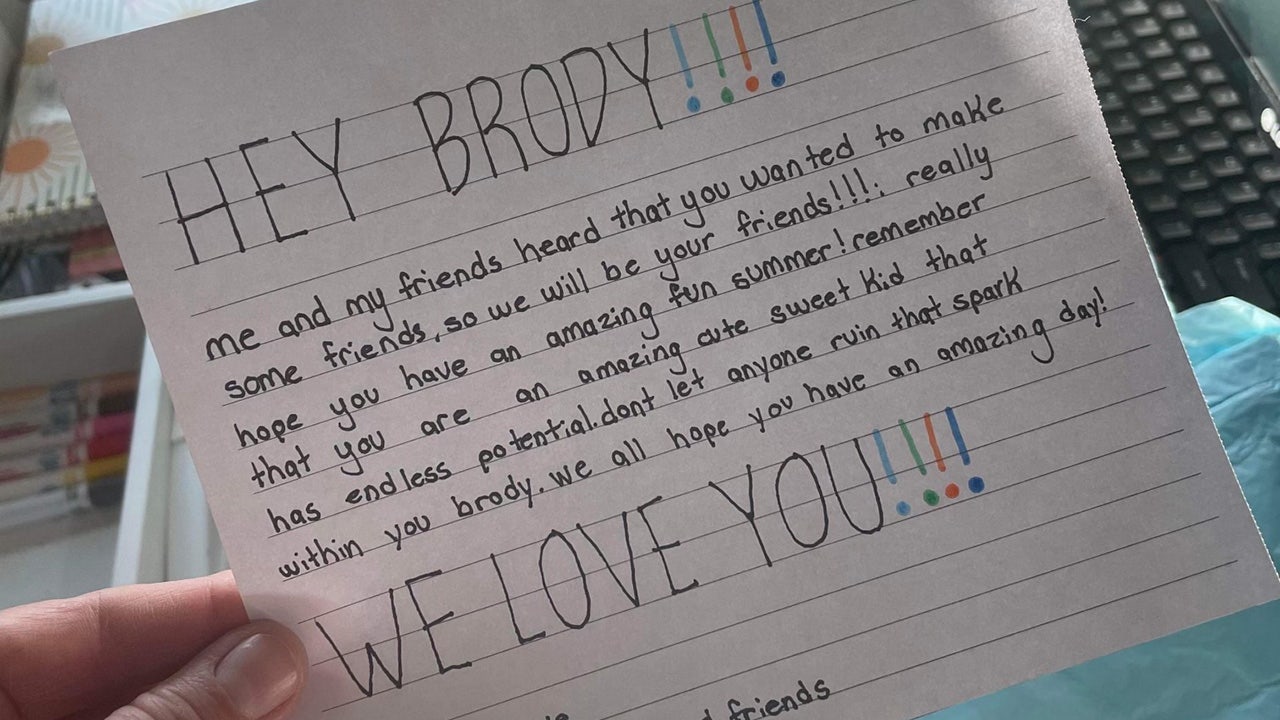 HEY BRODY!!!!
me and my friends heard that you wanted to make
some friends, so we will be your friends!!!. really
hope you have an amazing fun summer! remember
that you are an amazing cute sweet kid that
has endless potential. dont let anyone ruin that spark
within you brody. we all hope you have an amazing day!
WE LOVE YOU!!!!
friends